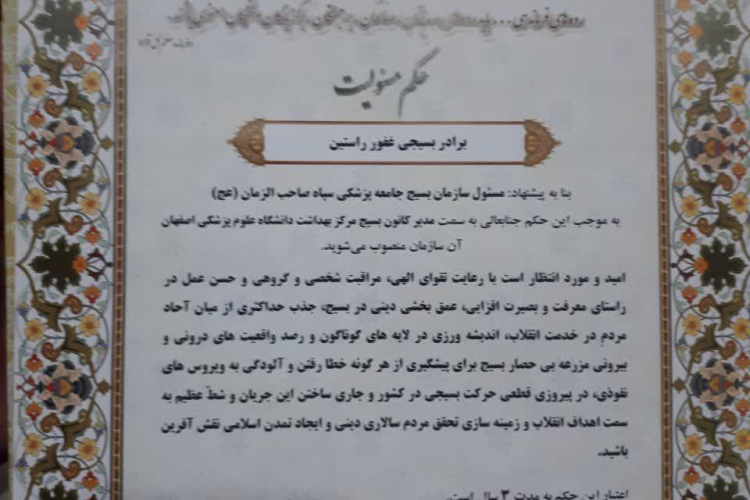 حکم مسئولیت
برادر بسیجی غفور راستین
بنا به پیشنهاد: مسئول سازمان بسیج جامعه پزشکی سپاه صاحب الزمان (عج)
به موجب این حکم جنابعالی به سمت مدیر کانون بسیج مرکز بهداشت دانشگاه علوم پزشکی اصفهان
آن سازمان منصوب می‌شوید.
امید و مورد انتظار است با رعایت تقوای الهی، مراقبت شخصی و گروهی و حسن عمل در
راستای معرفت و بصیرت افزایی، عمق بخشی دینی در بسیج، جذب حداکثری از میان آحاد
مردم در خدمت انقلاب، اندیشه ورزی در لایه های گوناگون و رصد واقعیت های درونی و
بیرونی مزرعه بی حصار بسیج برای پیشگیری از هر گونه خطا رفتن و آلودگی به ویروس های
نفوذی، در پیروزی قطعی حرکت بسیجی در کشور و جاری ساختن این جریان و شطّ عظیم به
سمت اهداف انقلاب و زمینه سازی تحقق مردم سالاری دینی و ایجاد تمدن اسلامی نقش آفرین
باشید.
اعتبار این حکم به مدت ۳ سال است.